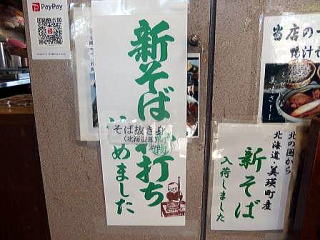 PayPay
新そば
打ち
めました
そば抜き
北の国から
北海道・美瑛町産
新そば
入荷しました
当店の
鴨汁